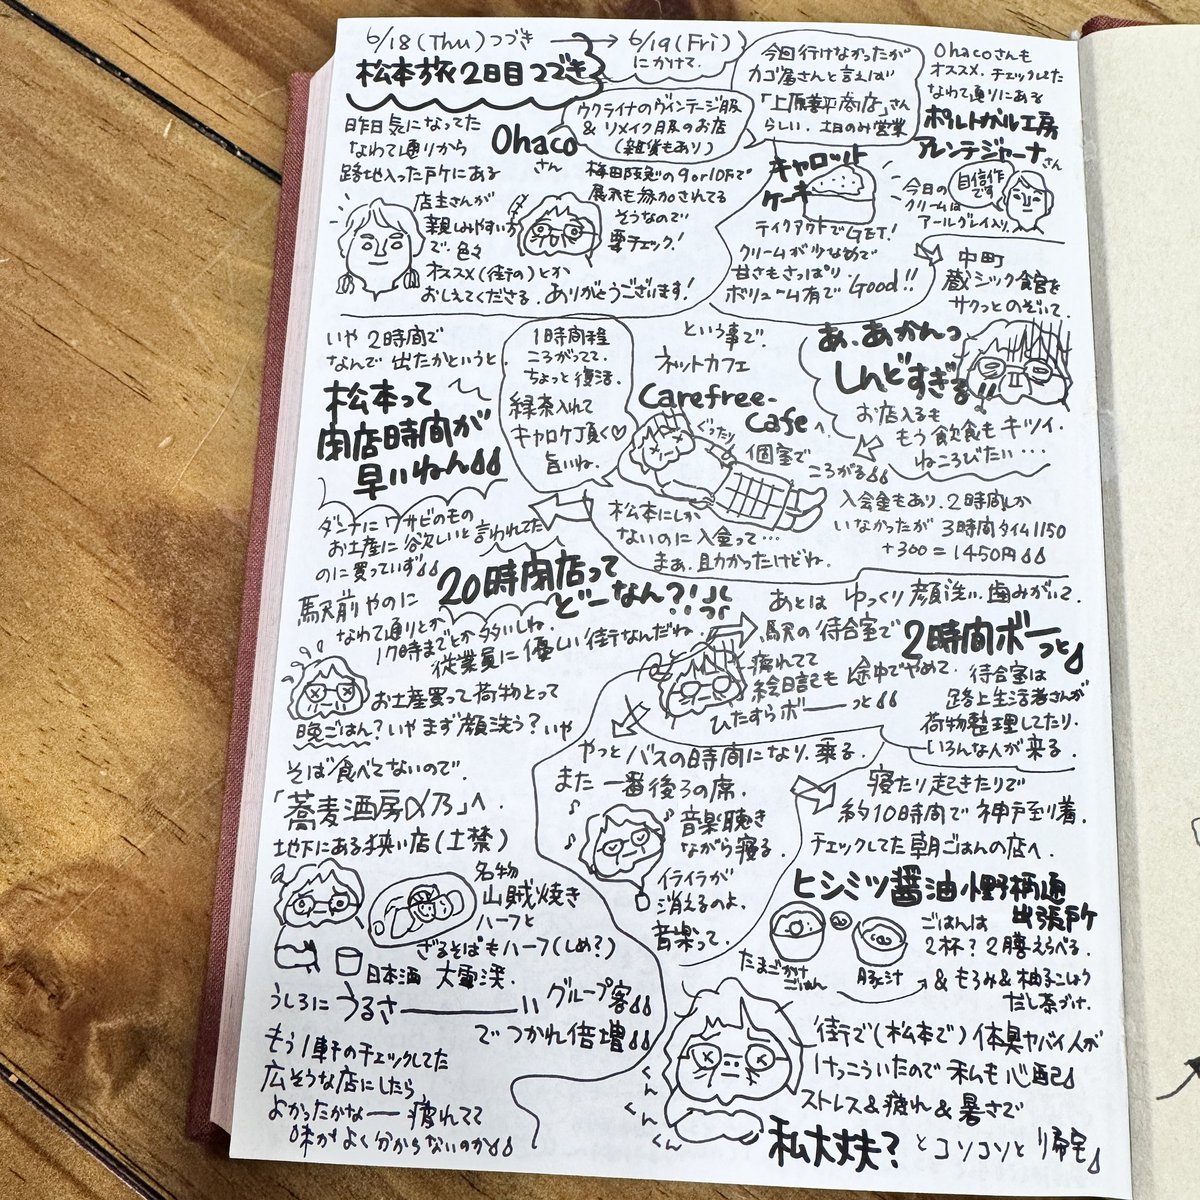 6/18(Thu)つづき → 6/19(Fri)
にかけて.
松本旅2日目つづき
昨日気になってた
なわて通りから
路地入った所にある
Ohaco
さん
ウクライナのヴィンテージ服
& リメイク服のお店
(雑貨もあり)
店主さんが
親しみやすい方
で. 色々
オススメ(街の)とか
おしえてくださる. ありがとうございます!
梅田阪急の9or10Fで
展示も参加されてる
そうなので
要チェック!
今回行けなかったが
カゴ屋さんと言えば
「上原善平商店」さん
らしい. 土日のみ営業
Ohacoさんも
オススメ. チェックしてた
なわて通りにある
ポルトガル工房
アレンテジャーナさん
自信作
です
今日の
クリームは
アールグレイ入り.
キャロット
ケーキ
テイクアウトでGET!
クリームが少なめで
甘さもさっぱり.
ボリューム有で Good!!
中町
蔵シック館を
サクっとのぞいて.
あ、あかんっ
しんどすぎる!!
お店入るも
もう飲食もキツイ.
ねころびたい…
という事で.
ネットカフェ
Carefree-
Cafeへ.
ぐったり
個室で
ころがる
入会金もあり. 2時間しか
いなかったが 3時間タイム1150
+300=1450円
松本にしか
ないのに入会って…
まぁ、助かったけどね.
1時間程
ころがってて.
ちょっと復活.
緑茶入れて
キャロケ頂く♡
旨いね.
いや 2時間で
なんで出たかというと
松本って
閉店時間が
早いねん
ダンナにワサビのもの
お土産に欲しいと言われてた
のに買っていず
20時閉店って
どーなん?!
駅前やのに
なわて通りとか
17時までとか多いしね.
従業員に優しい街なんだね.
お土産買って荷物とって
晩ごはん? いやまず顔洗う? いや
そば食べてないので.
「蕎麦酒房〆乃」へ.
地下にある狭い店(土禁)
名物
山賊焼き
ハーフと
ざるそばもハーフ(しめ?)
日本酒 大雪渓.
うしろに うるさーーーい グループ客
でつかれ倍増
もう1軒のチェックしてた
広そうな店にしたら
よかったかなー 疲れてて
味がよく分からないのか
あとは ゆっくり顔洗い. 歯みがいて.
駅の待合室で 2時間ボーっと
疲れてて
絵日記も途中でやめて.
ひたすらボーーっと
待合室は
路上生活者さんが
荷物整理してたり.
いろんな人が来る.
やっとバスの時間になり. 乗る
また 一番後ろの席.
音楽聴き
ながら寝る.
イライラが
消えるのよ.
音楽って.
寝たり起きたりで
約10時間で神戸到着.
チェックしてた朝ごはんの店へ.
ヒシミツ醤油 小野柄通
出張所
たまごかけ
ごはん
豚汁
ごはんは
2杯? 2膳えらべる.
& もろみ&柚子こしょう
だし茶づけ.
街で(松本で)体臭ヤバイ人が
けっこういたので 私も心配
ストレス&疲れ&暑さで
くん
くん
くん
私大丈夫? とコソコソと帰宅